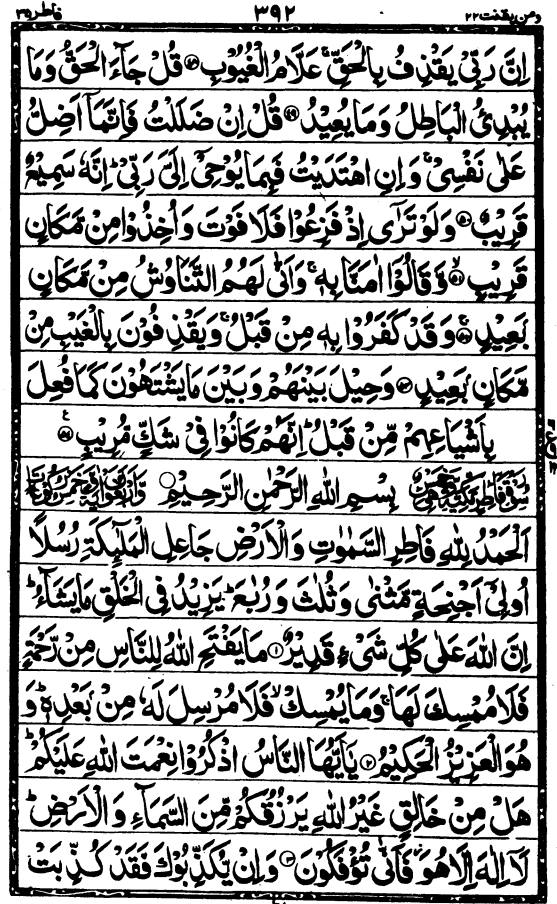 ومن يقنت ٢٢ ٣٩٢ فاطر ٣٥
اِنَّ رَبِّىْ يَقْذِفُ بِالْحَقِّ ۚ عَلَّامُ الْغُيُوْبِ ﴿٤٨﴾ قُلْ جَآءَ الْحَقُّ وَمَا
يُبْدِئُ الْبَاطِلُ وَمَا يُعِيْدُ ﴿٤٩﴾ قُلْ اِنْ ضَلَلْتُ فَاِنَّمَآ اَضِلُّ
عَلٰى نَفْسِىْ ۚ وَاِنِ اهْتَدَيْتُ فَبِمَا يُوْحِىْٓ اِلَىَّ رَبِّىْ ؕ اِنَّهٗ سَمِيْعٌ
قَرِيْبٌ ﴿٥٠﴾ وَلَوْ تَرٰٓى اِذْ فَزِعُوْا فَلَا فَوْتَ وَاُخِذُوْا مِنْ مَّكَانٍ
قَرِيْبٍ ﴿٥١﴾ۙ وَّقَالُوْٓا اٰمَنَّا بِهٖ ۚ وَاَنّٰى لَهُمُ التَّنَاوُشُ مِنْ مَّكَانٍۭ
بَعِيْدٍ ﴿٥٢﴾ۚ وَّقَدْ كَفَرُوْا بِهٖ مِنْ قَبْلُ ۚ وَيَقْذِفُوْنَ بِالْغَيْبِ مِنْ
مَّكَانٍۭ بَعِيْدٍ ﴿٥٣﴾ وَحِيْلَ بَيْنَهُمْ وَبَيْنَ مَا يَشْتَهُوْنَ كَمَا فُعِلَ
بِاَشْيَاعِهِمْ مِّنْ قَبْلُ ؕ اِنَّهُمْ كَانُوْا فِىْ شَكٍّ مُّرِيْبٍ ﴿٥٤﴾
بِسْمِ اللّٰهِ الرَّحْمٰنِ الرَّحِيْمِ
اَلْحَمْدُ لِلّٰهِ فَاطِرِ السَّمٰوٰتِ وَالْاَرْضِ جَاعِلِ الْمَلٰٓئِكَةِ رُسُلًا
اُولِىْٓ اَجْنِحَةٍ مَّثْنٰى وَثُلٰثَ وَرُبٰعَ ؕ يَزِيْدُ فِى الْخَلْقِ مَا يَشَآءُ ؕ
اِنَّ اللّٰهَ عَلٰى كُلِّ شَىْءٍ قَدِيْرٌ ﴿١﴾ مَا يَفْتَحِ اللّٰهُ لِلنَّاسِ مِنْ رَّحْمَةٍ
فَلَا مُمْسِكَ لَهَا ۚ وَمَا يُمْسِكْ ۙ فَلَا مُرْسِلَ لَهٗ مِنْۢ بَعْدِهٖ ؕ وَ
هُوَ الْعَزِيْزُ الْحَكِيْمُ ﴿٢﴾ يٰٓاَيُّهَا النَّاسُ اذْكُرُوْا نِعْمَتَ اللّٰهِ عَلَيْكُمْ ؕ
هَلْ مِنْ خَالِقٍ غَيْرُ اللّٰهِ يَرْزُقُكُمْ مِّنَ السَّمَآءِ وَالْاَرْضِ ؕ
لَآ اِلٰهَ اِلَّا هُوَ ۖ فَاَنّٰى تُؤْفَكُوْنَ ﴿٣﴾ وَاِنْ يُّكَذِّبُوْكَ فَقَدْ كُذِّبَتْ